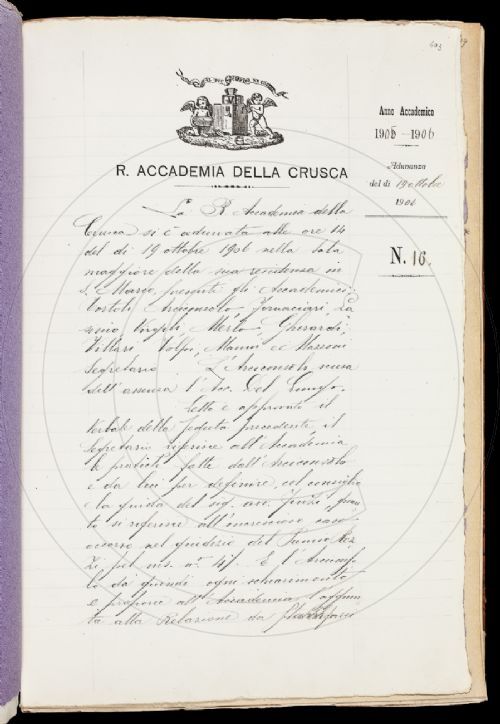 403
R. ACCADEMIA DELLA CRUSCA
Anno Accademico
1905-1906
Adunanza
del dì 19 ottobre
1906
N. 16.
La R. Accademia della
Crusca si è adunata alle ore 14
del dì 19 ottobre 1906 nella sala
maggiore della sua residenza in
S. Marco, presenti gli Accademici:
Tortoli, Arciconsolo, Fornaciari,
Virgili, Merlo, Gherardi,
Villari, Volpi, e Mazzoni
Segretario. L'Arciconsolo scusa
dell'assenza l'Acc. Del Lungo.
Letto e approvato il
verbale della seduta precedente il
Segretario riferisce all'Accademia
le pratiche fatte dall'Arciconsolo
e da lui per definire, col consiglio
e la guida del sig. avv.
si riferisce all'increscioso caso
occorso nel giudizio del Premio
pel ms. n.° 4
dà quindi ogni schiarimento
e propone all'Accademia l'aggiun
ta alla Relazione da